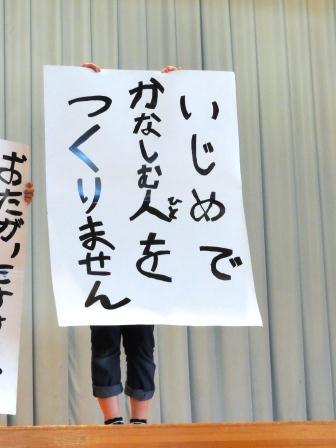 いじめで
かなしむ人を
ひと
つくりません
おたがい